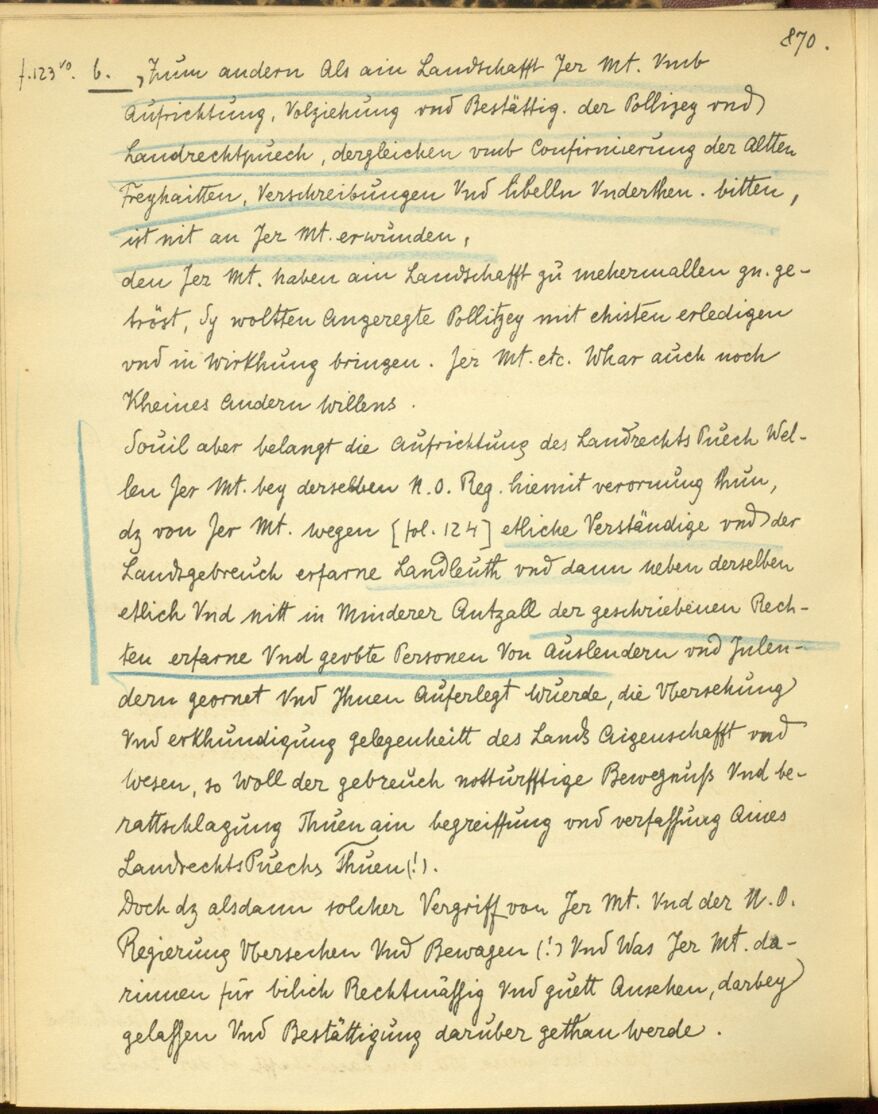 870.
f. 123 vo. 6. „Zum andern Als ain Landschafft Jer Mt. Vmb
Aufrichtung, Volziehung vnd Bestättig. der Pollizey vnd
Landrechtpuech, dergleichen vmb Confirmierung der Altten
Freyhaitten, Verschreibungen Vnd libelln Vnderthen. bitten,
ist nit an Jer Mt. erwunden,
den Jer Mt. haben ain Landschafft zu mehermallen gn. ge-
tröst, Sy woltten Angeregte Pollitzey mit ehisten erledigen
vnd in Wirkhung bringen. Jer Mt. etc. Whar auch noch
Kheines Andern Willens.
Souil aber belangt die Aufrichtung des Landrechts Puech Wel-
len Jer Mt. bey derselben N. O. Reg. hiemit verornung thun,
dz von Jer Mt. wegen [fol. 124] etliche Verständige vnd der
Landsgebreuch erfarne Landleuth vnd dann neben derselben
etlich Vnd nitt in Minderer Antzall der geschriebenen Rech-
ten erfarne Vnd geobte Personen Von Auslendern vnd Julen-
dern geornet Vnd Jhnen Auferlegt wuerde, die Vbersehung
Vnd erkhundigung gelegenheitt des Lands Aigenschafft vnd
Wesen, so Woll der gebreuch notturfftige Bewegnuß Vnd be-
rattschlagung Thuen ain begreiffung vnd verfassung Aines
LandrechtsPuechs Thuen (!).
Doch dz alsdann solcher Vergriff von Jer Mt. Vnd der N. O.
Regierung Vbersechen Vnd Bewagen (!) Vnd Was Jer Mt. da-
rinnen für bilich Rechtmässig Vnd guett Ansehen, darbey
gelassen Vnd Bestättigung daruber gethan werde.